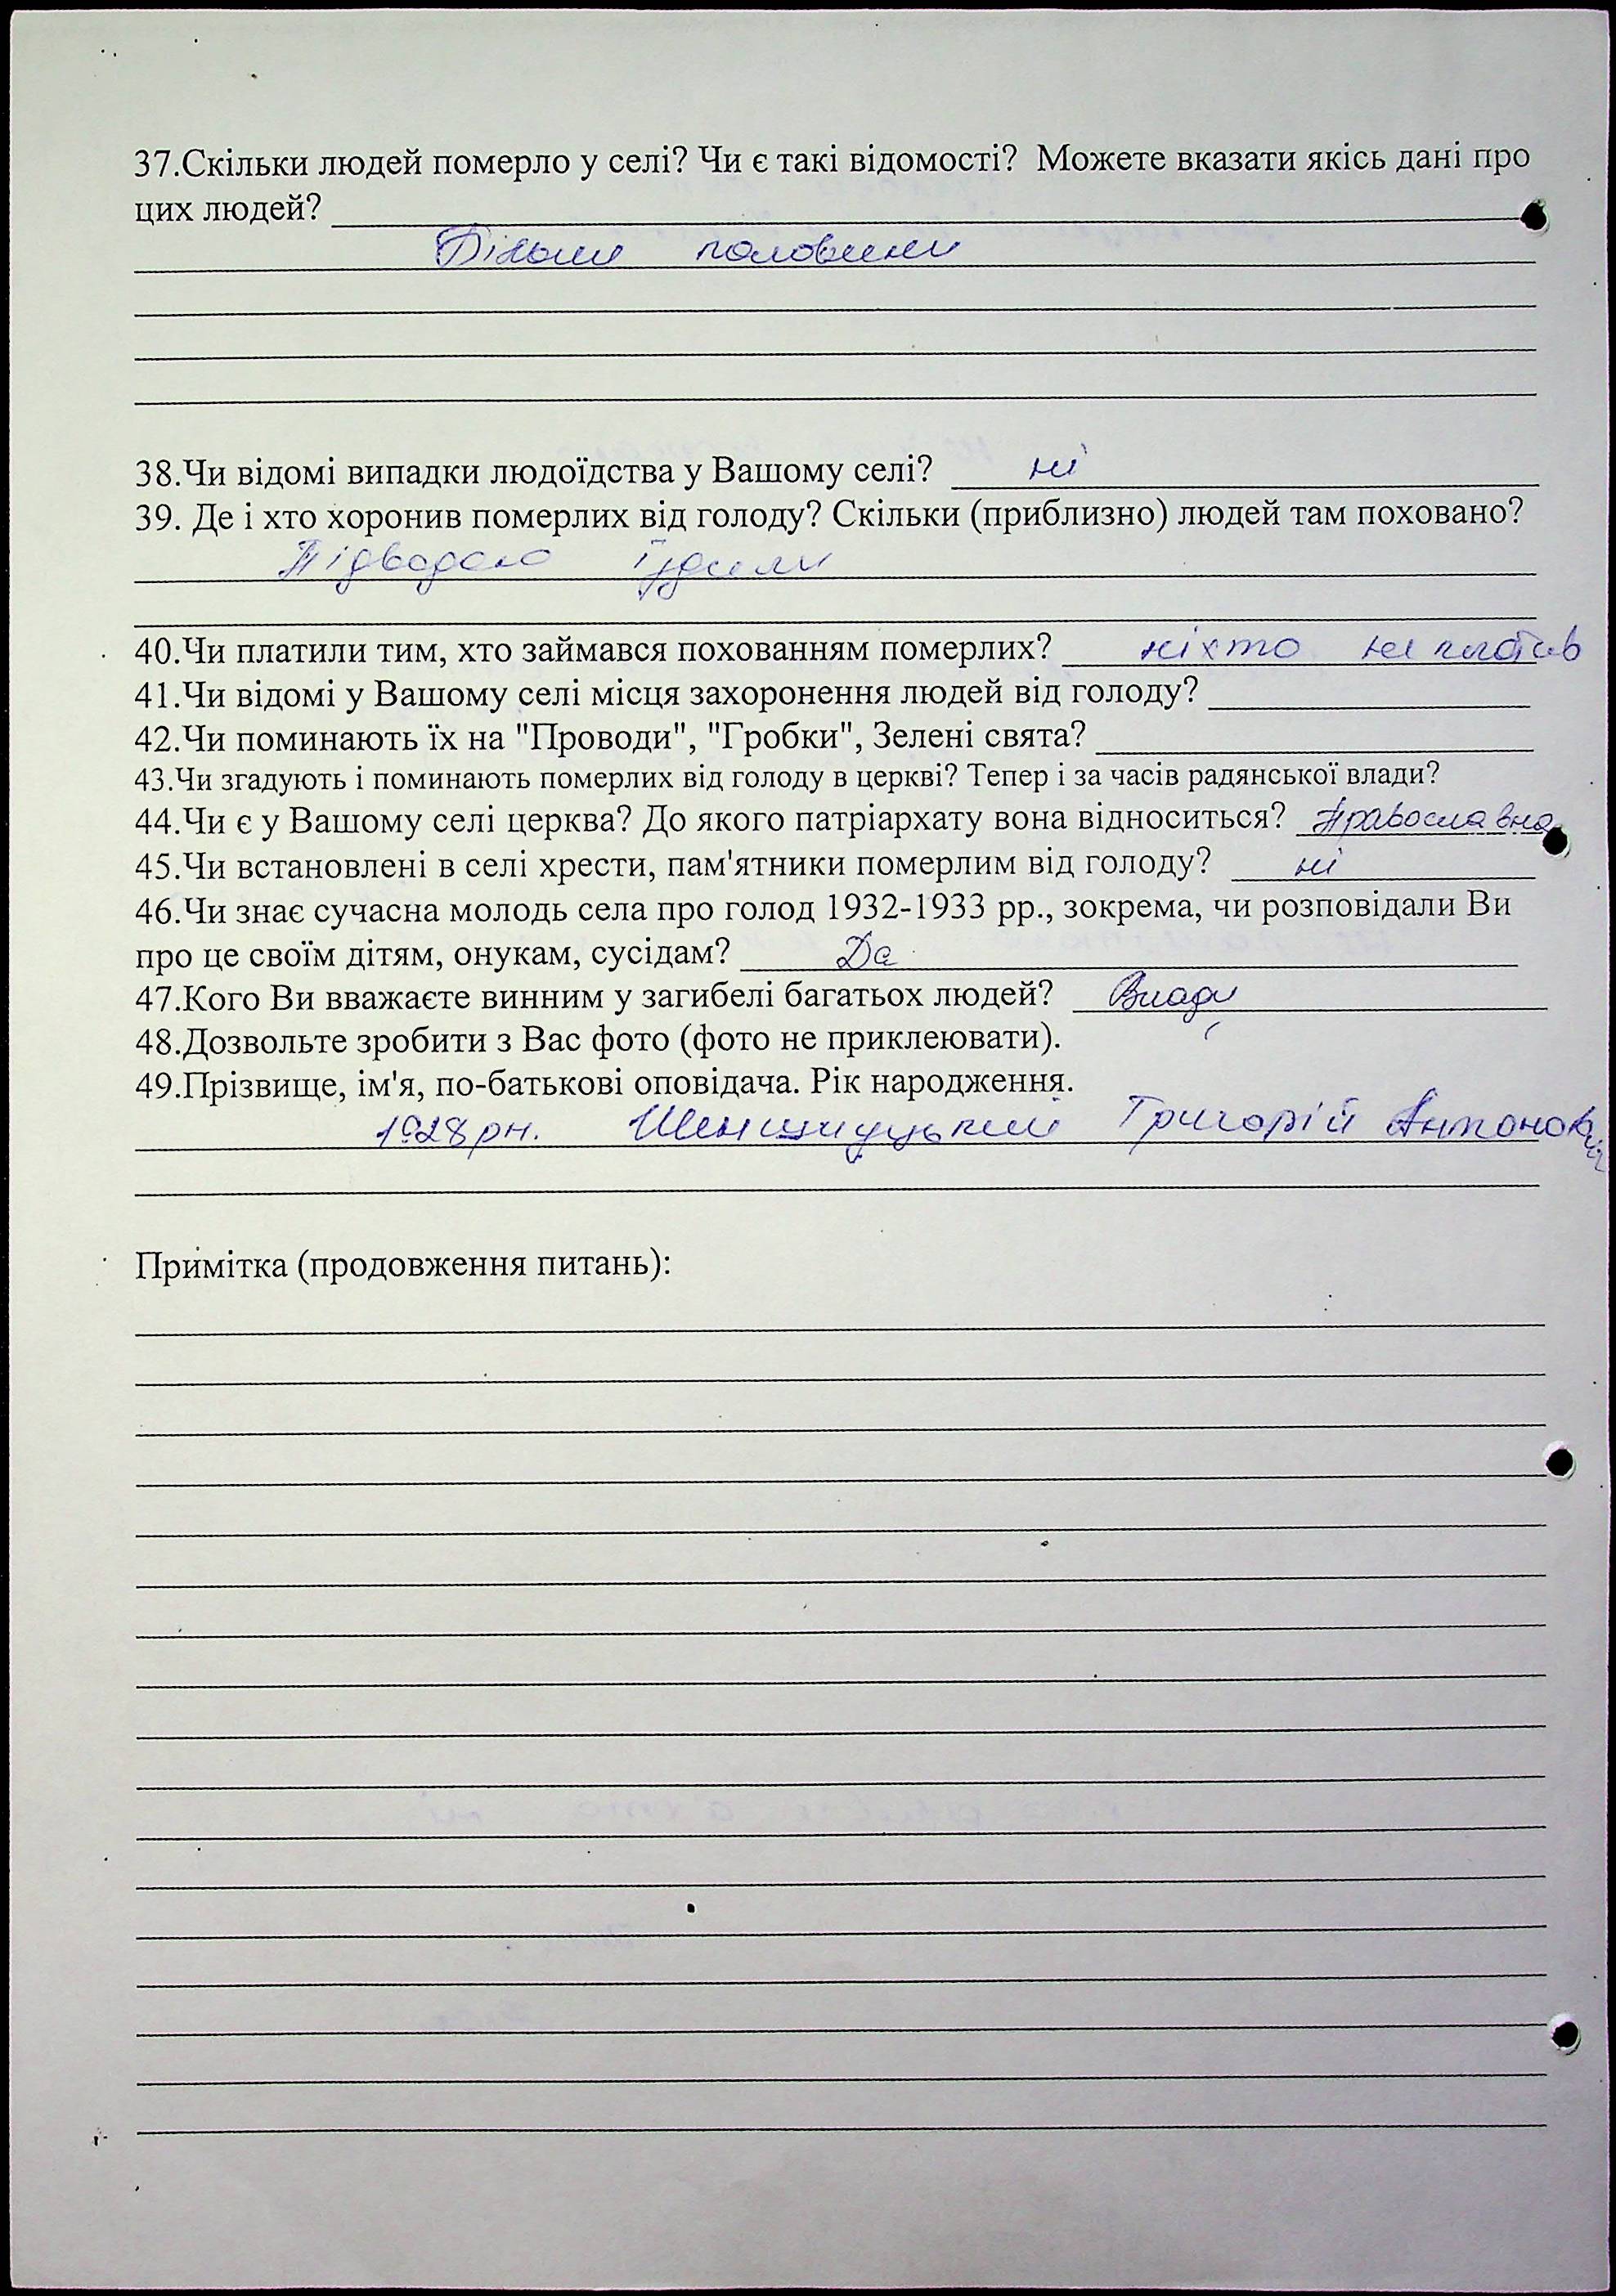 37.Скільки людей померло у селі? Чи є такі відомості? Можете вказати якісь дані про
цих людей?
Більше половини
38.Чи відомі випадки людоїдства у Вашому селі? ні
39. Де і хто хоронив померлих від голоду? Скільки (приблизно) людей там поховано?
Підводою їздили
40.Чи платили тим, хто займався похованням померлих? ніхто не платив
41.Чи відомі у Вашому селі місця захоронення людей від голоду?
42.Чи поминають їх на "Проводи", "Гробки", Зелені свята?
43.Чи згадують і поминають померлих від голоду в церкві? Тепер і за часів радянської влади?
44.Чи є у Вашому селі церква? До якого патріархату вона відноситься? Православна
45.Чи встановлені в селі хрести, пам'ятники померлим від голоду? ні
46.Чи знає сучасна молодь села про голод 1932-1933 рр., зокрема, чи розповідали Ви
про це своїм дітям, онукам, сусідам? Да
47.Кого Ви вважаєте винним у загибелі багатьох людей? Владу
48.Дозвольте зробити з Вас фото (фото не приклеювати).
49.Прізвище, ім'я, по-батькові оповідача. Рік народження.
1928 рн. Григорій Антонович
Примітка (продовження питань):